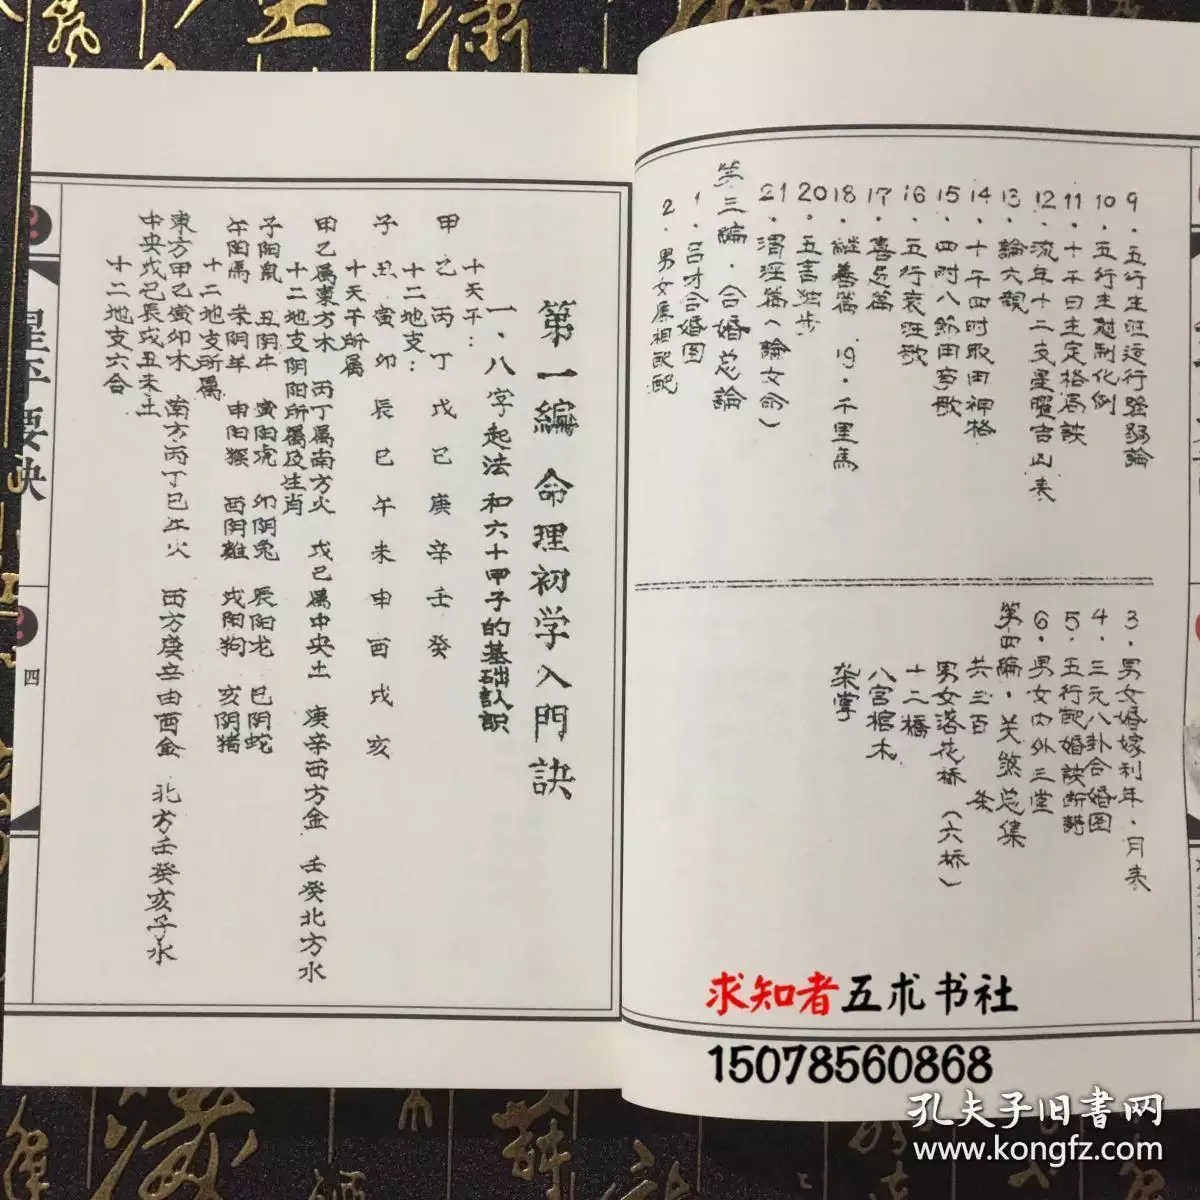 9．五行生旺运行强弱論
10．五行生尅制化例
11．十干日主定格局訣
12．流年十二支星曜吉凶表
13．論六親
14．十干四时取用神格
15．四时八節用事歌
16．五行衰旺歌
17．喜忌篇
18．継善篇　19．千里馬
20．五言独步
21．渭泾篇（論女命）
第三編．合婚总論
1．吕才合婚图
2．男女属相配配
3．男女婚嫁利年．月表
4．三元八卦合婚图
5．五行配婚訣断諺
6．男女内外三堂
第四編．关煞总集
共三百　条
男女落花桥（六桥）
十二橋
八宫棺木
架掌
第一編 命理初学入門訣
一．八字起法和六十甲子的基础认识
十天干：
甲乙丙丁戊己庚辛壬癸
十二地支：
子丑寅卯辰巳午未申酉戌亥
十天干所属
甲乙属東方木　丙丁属南方火　戊己属中央土　庚辛西方金　壬癸北方水
十二地支阴阳所属及生肖
子阳鼠　丑阴牛　寅阳虎　卯阴兔　辰阳龙　巳阴蛇
午阳馬　未阴羊　申阳猴　酉阴雞　戌阳狗　亥阴猪
十二地支所属
東方甲乙寅卯木　南方丙丁巳午火　西方庚辛申酉金　北方壬癸亥子水
中央戊己辰戌丑未土
十二地支六合
星平要訣
四
求知者五术书社
15078560868
孔夫子旧書网
www.kongfz.com